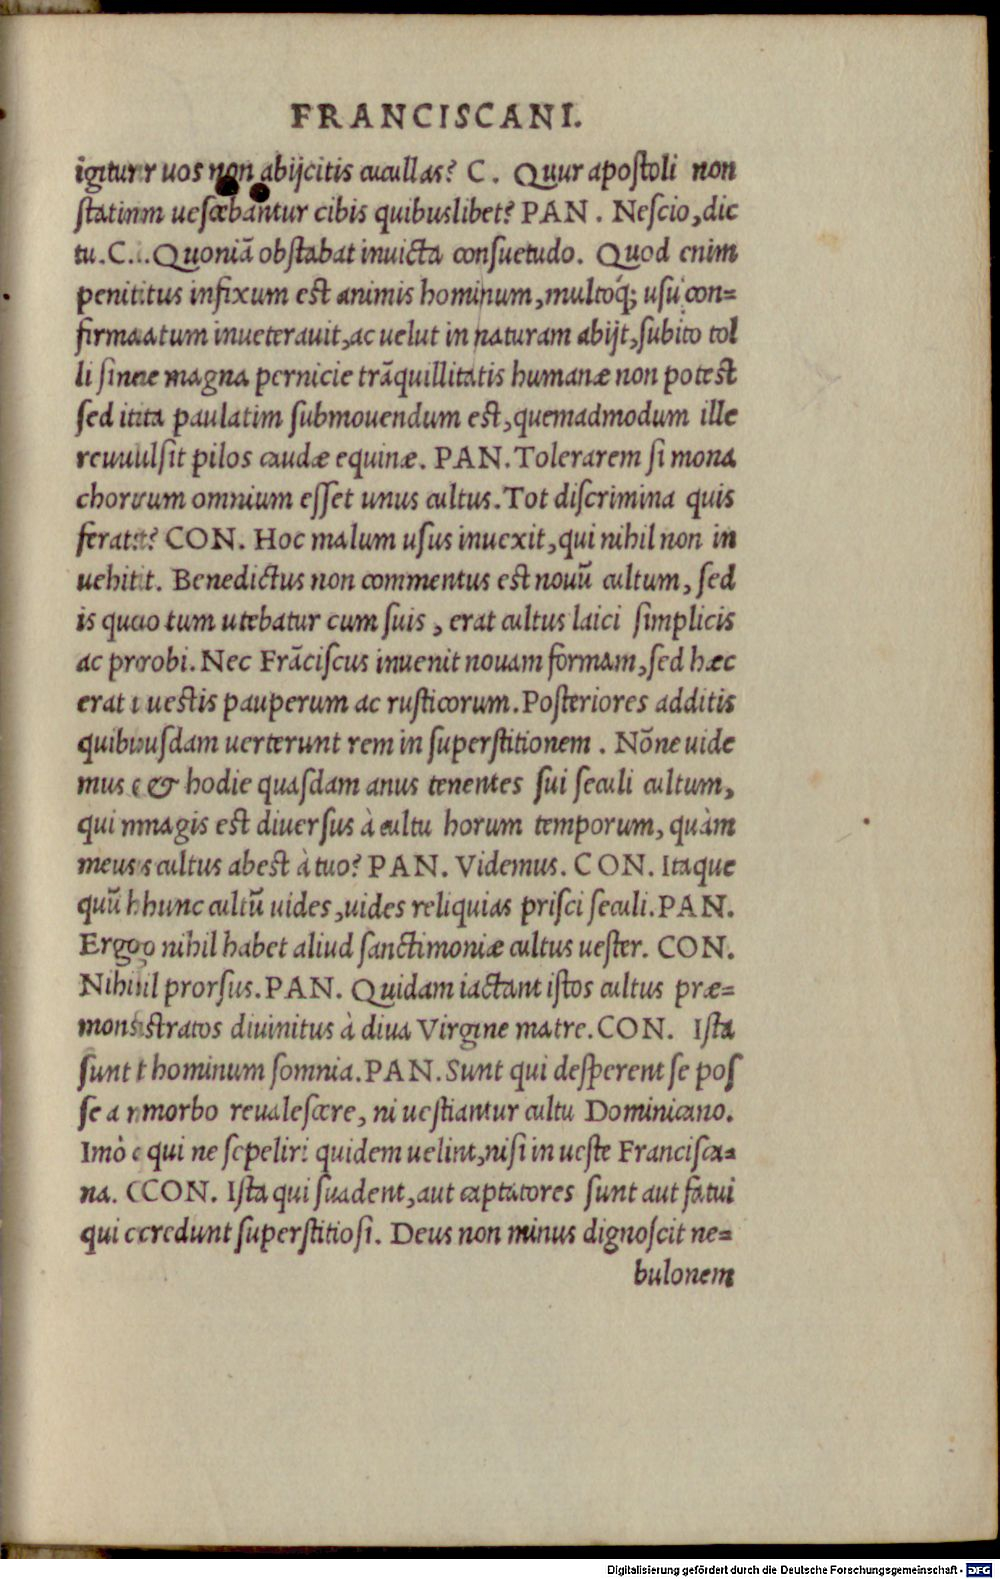 FRANCISCANI.
igitur uos non abijcitis cucullas? C. Quur apostoli non
statim uescebantur cibis quibuslibet? PAN. Nescio, dic
tu. C. Quoniā obstabat inuicta consuetudo. Quod enim
penitus infixum est animis hominum, multoq́; usu con=
firmatum inueterauit, ac uelut in naturam abijt, subito tol
li sine magna pernicie trāquillitatis humanæ non potest
sed ita paulatim submouendum est, quemadmodum ille
reuulsit pilos caudæ equinæ. PAN. Tolerarem si mona
chorum omnium esset unus cultus. Tot discrimina quis
ferat? CON. Hoc malum usus inuexit, qui nihil non in
uehit. Benedictus non commentus est nouū cultum, sed
is quo tum utebatur cum suis, erat cultus laici simplicis
ac probi. Nec Frāciscus inuenit nouam formam, sed hæc
erat uestis pauperum ac rusticorum. Posteriores additis
quibusdam uerterunt rem in superstitionem. Nōne uide
mus & hodie quasdam anus tenentes sui seculi cultum,
qui magis est diuersus à cultu horum temporum, quàm
meus cultus abest à tuo? PAN. Videmus. CON. Itaque
quū hunc cultū uides, uides reliquias prisci seculi. PAN.
Ergo nihil habet aliud sanctimoniæ cultus uester. CON.
Nihil prorsus. PAN. Quidam iactant istos cultus præ=
monstratos diuinitus à diua Virgine matre. CON. Ista
sunt hominum somnia. PAN. Sunt qui desperent se pos
se a morbo reualescere, ni uestiantur cultu Dominicano.
Imò qui ne sepeliri quidem uelint, nisi in ueste Francisca=
na. CON. Ista qui suadent, aut captatores sunt aut fatui
qui credunt superstitiosi. Deus non minus dignoscit ne=
bulonem
Digitalisierung gefördert durch die Deutsche Forschungsgemeinschaft - DFG